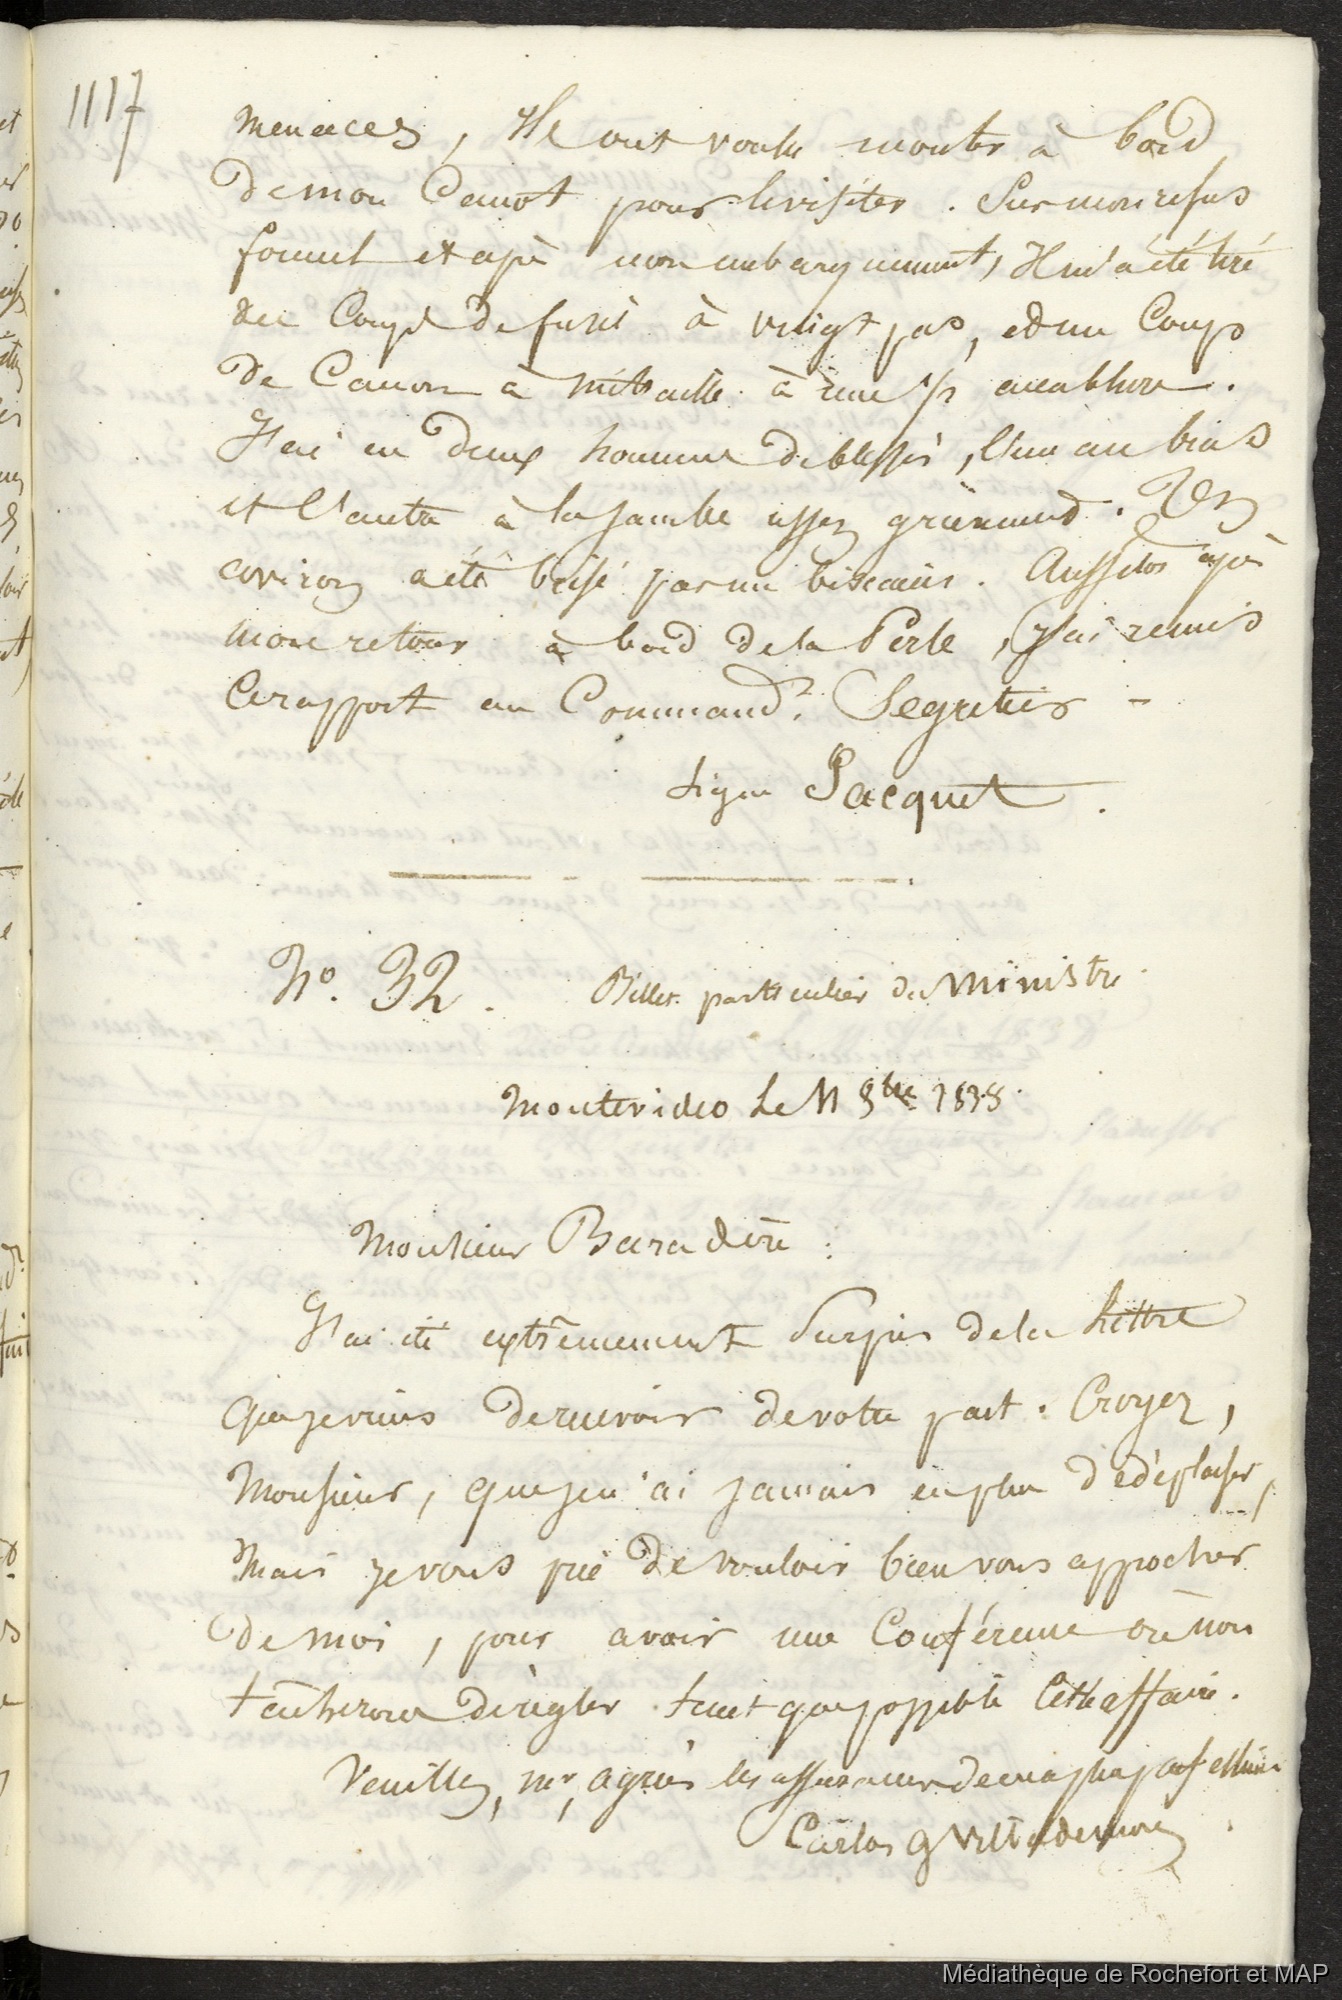 1117
menaces, Ils ont voulu monter à bord
de mon Canot pour le visiter. Sur mon refus
formel et après mon embarquement, Il m'a été tiré
des Coups de fusil à vingt pas, et un Coup
de Canon à mitraille à une 1/2 encablure.
J'ai eu deux hommes de blessés, l'un au bras
et l'autre à la jambe assez grièvement. Un
aviron a été brisé par un biscaïen. Aussitôt après
mon retour à bord de la Perle, j'ai remis
Ce rapport au Command.t Segretier -
Signé Jacquet.
N.o 32. Billet particulier du Ministre.
Montevideo Le 11 8bre 1838.
Monsieur Baradère:
J'ai été extrêmement Surpris de la Lettre
que je viens de recevoir de votre part. Croyez,
Monsieur, que je n'ai jamais eu plus de déplaisir,
Mais je vous prie de vouloir bien vous approcher
de moi, pour avoir une Conférence où nous
tâcherons de régler tant que possible Cette affaire.
Veuillez, Mr, agréer les assurances de ma plus parf. estime
Carlos G Villademoros
Médiathèque de Rochefort et MAP